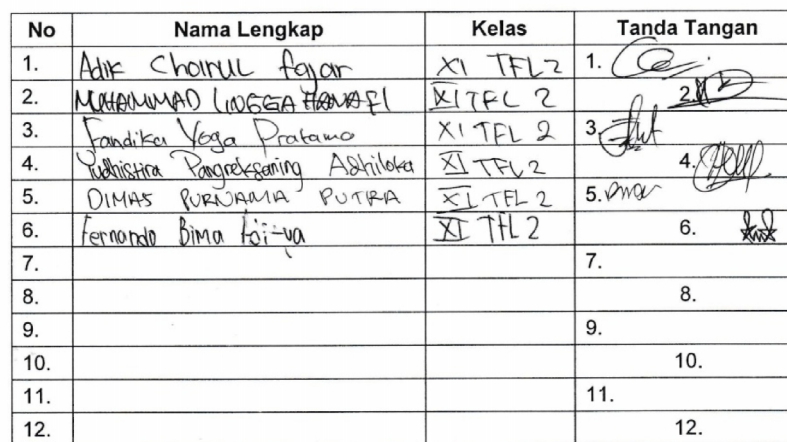 No Nama Lengkap Kelas Tanda Tangan
1. Adik Choirul fajar XI TFL 2 1.
2. MUHAMMAD LINGGA HANAFI XI TFL 2 2.
3. Fandika Yoga Pratama XI TFL 2 3.
4. Yudhistira Pangreksaning Adhiloka XI TFL 2 4.
5. DIMAS PURNAMA PUTRA XI TFL 2 5. Dimas
6. Fernando Bima XI TFL 2 6.
7. 7.
8. 8.
9. 9.
10. 10.
11. 11.
12. 12.